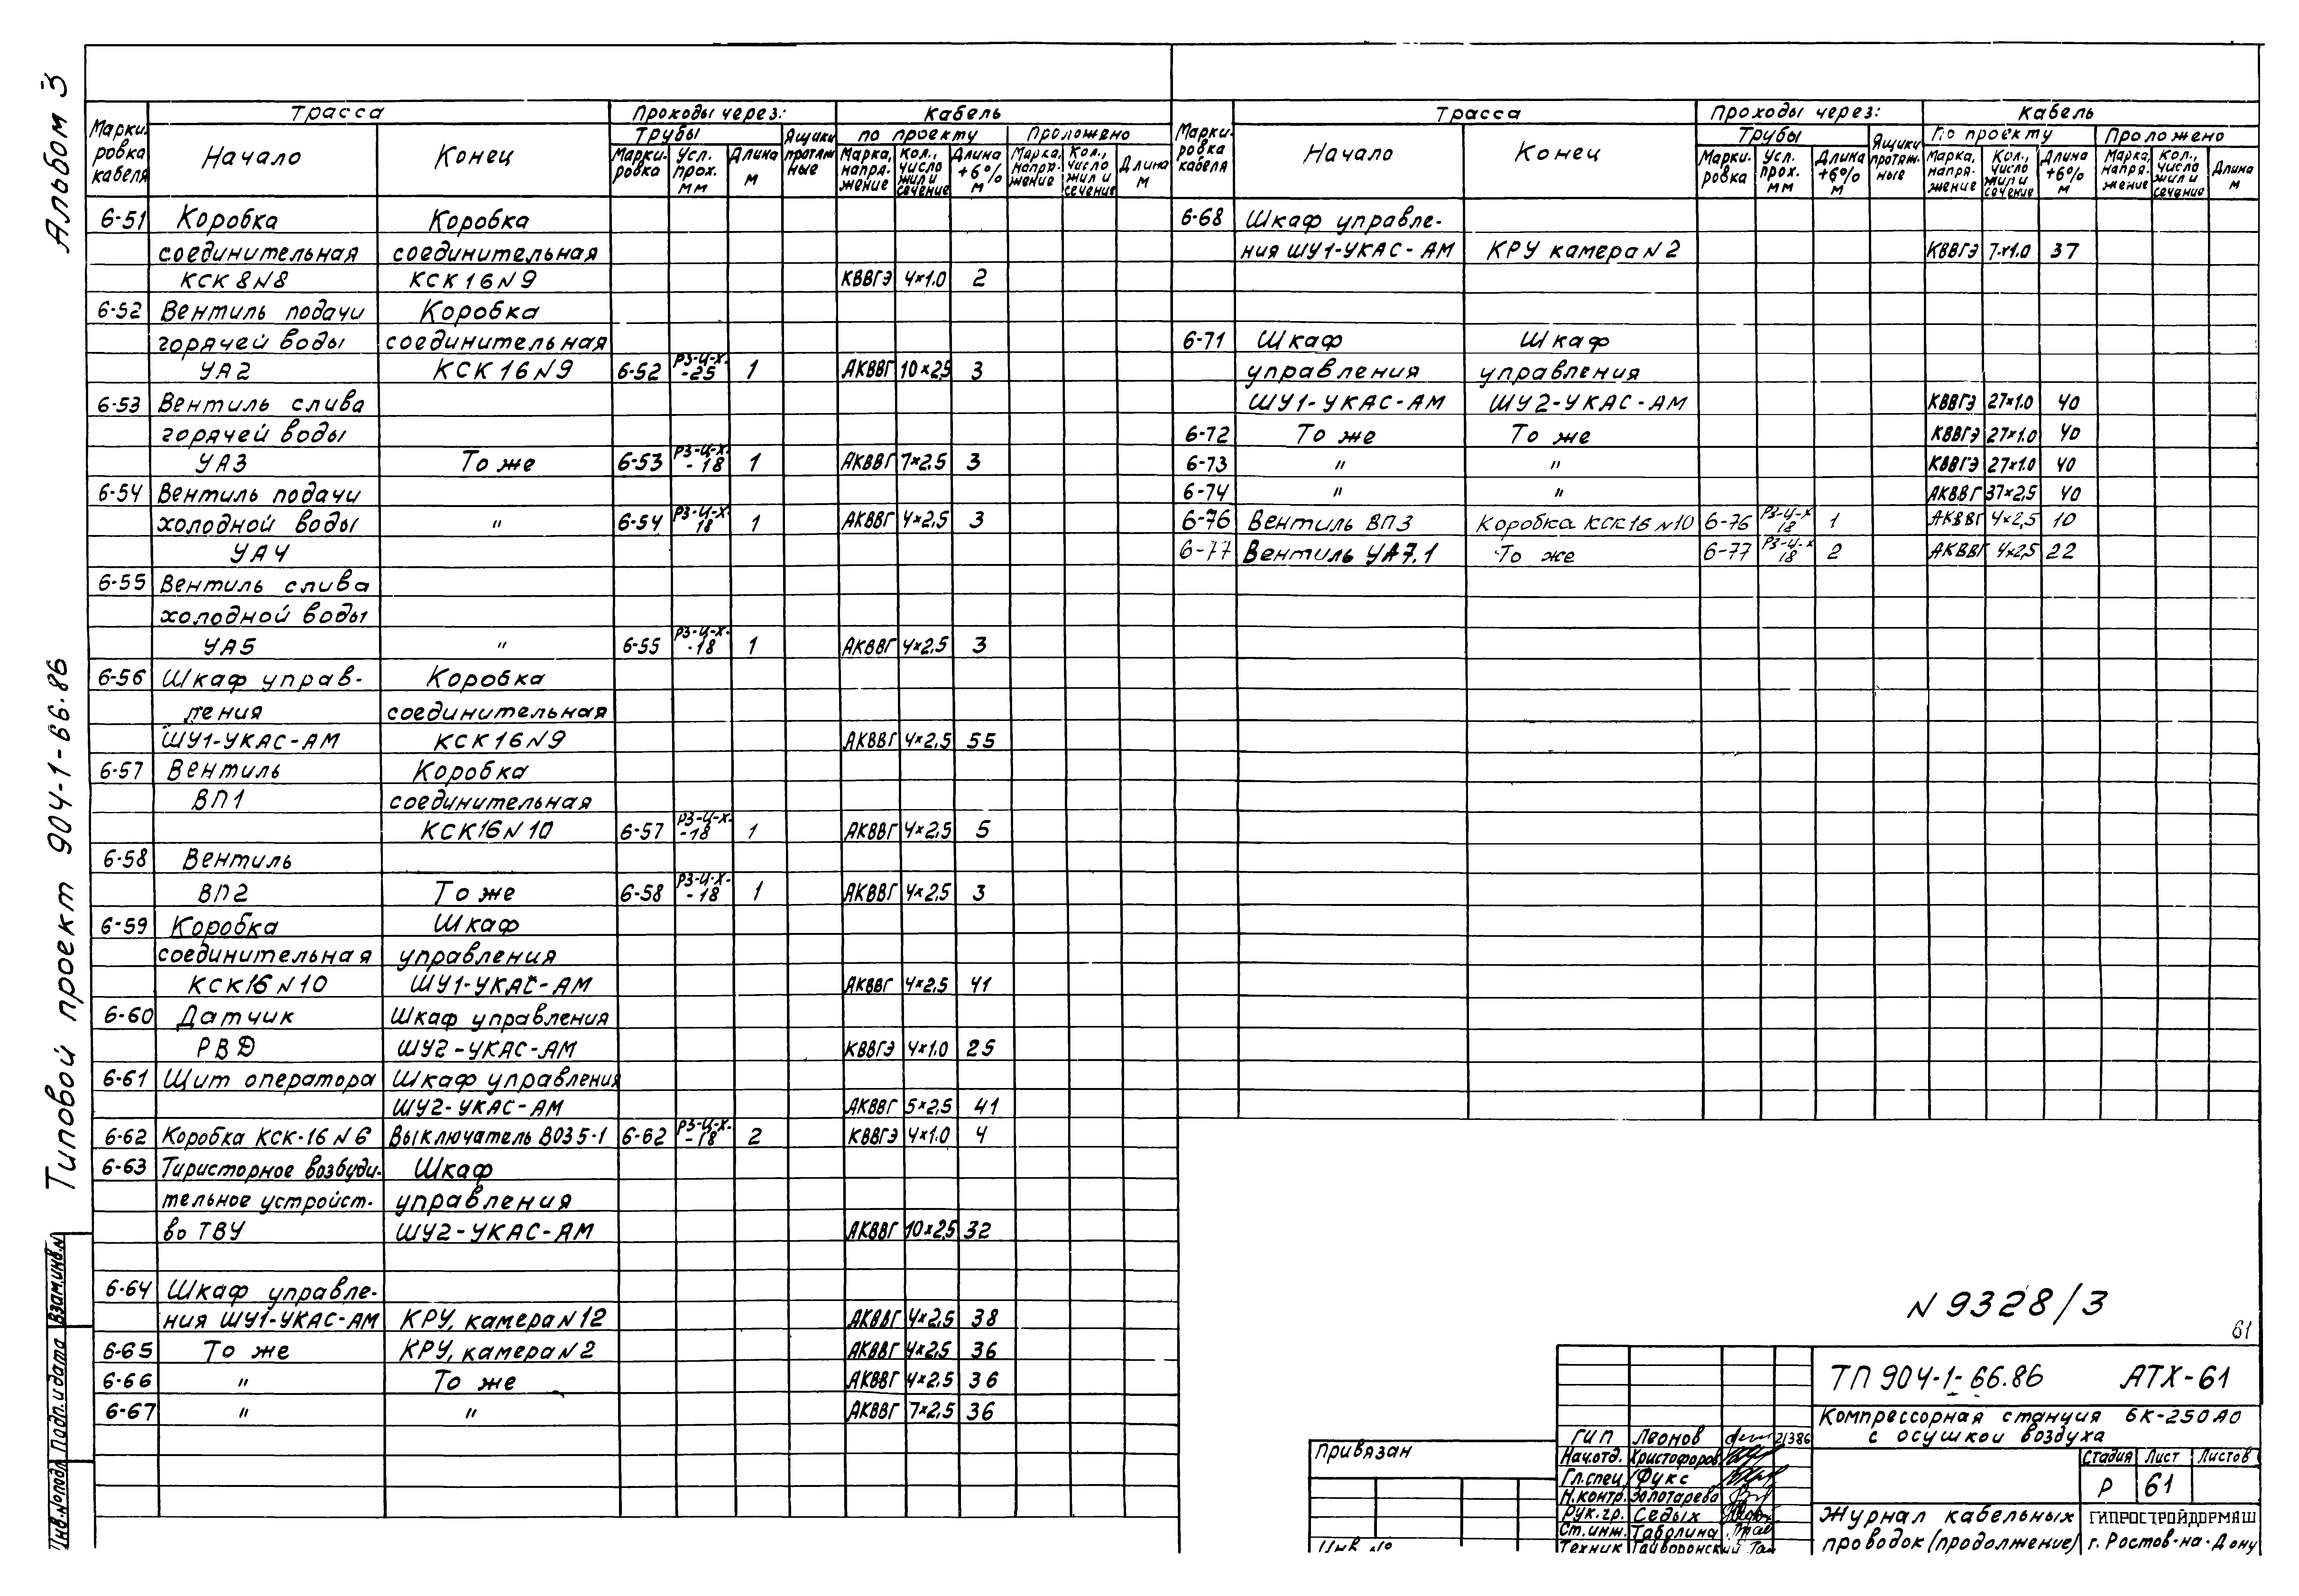 Альбом 3
Типовой проект 904-1-66.86
Маркировка кабеля | Трасса | Проходы через: | Кабель
Начало | Конец | Трубы | Ящики протяжные | по проекту | Проложено
Маркировка | Усл. прох. мм | Длина м | Марка, напряжение | Кол., число жил и сечение | Длина +6% м | Марка, напряжение | Кол., число жил и сечение | Длина м
6-51 Коробка Коробка
соединительная соединительная
КСК 8 N8 КСК 16 N9 КВВГЭ 4×1.0 2
6-52 Вентиль подачи Коробка
горячей воды соединительная
УА2 КСК 16 N9 6-52 РЗ-Ц-Х-25 1 АКВВГ 10×2,5 3
6-53 Вентиль слива
горячей воды
УА3 То же 6-53 РЗ-Ц-Х-18 1 АКВВГ 7×2.5 3
6-54 Вентиль подачи
холодной воды " 6-54 РЗ-Ц-Х 18 1 АКВВГ 4×2,5 3
УА4
6-55 Вентиль слива
холодной воды
УА5 " 6-55 РЗ-Ц-Х-18 1 АКВВГ 4×2,5 3
6-56 Шкаф управ- Коробка
ления соединительная
ШУ1-УКАС-АМ КСК 16 N9 АКВВГ 4×2,5 55
6-57 Вентиль Коробка
ВП1 соединительная
КСК16 N10 6-57 РЗ-Ц-Х-18 1 АКВВГ 4×2,5 5
6-58 Вентиль
ВП2 То же 6-58 РЗ-Ц-Х-18 1 АКВВГ 4×2,5 3
6-59 Коробка Шкаф
соединительная управления
КСК16 N10 ШУ1-УКАС-АМ АКВВГ 4×2,5 41
6-60 Датчик Шкаф управления
РВД ШУ2-УКАС-АМ КВВГЭ 4×1.0 25
6-61 Щит оператора Шкаф управления
ШУ2-УКАС-АМ АКВВГ 5×2,5 41
6-62 Коробка КСК-16 N6 Выключатель ВО35-1 6-62 РЗ-Ц-Х-18 2 КВВГЭ 4×1.0 4
6-63 Тиристорное возбуди- Шкаф
тельное устройст- управления
во ТВУ ШУ2-УКАС-АМ АКВВГ 10×2,5 32
6-64 Шкаф управле-
ния ШУ1-УКАС-АМ КРУ, камера N12 АКВВГ 4×2,5 38
6-65 То же КРУ, камера N2 АКВВГ 4×2,5 36
6-66 " То же АКВВГ 4×2,5 36
6-67 " " АКВВГ 7×2,5 36
Маркировка кабеля | Трасса | Проходы через: | Кабель
Начало | Конец | Трубы | Ящики протяжные | По проекту | Проложено
Маркировка | Усл. прох. мм | Длина +6% м | Марка, напряжение | Кол., число жил и сечение | Длина +6% м | Марка, напряжение | Кол., число жил и сечение | Длина м
6-68 Шкаф управле-
ния ШУ1-УКАС-АМ КРУ камера N2 КВВГЭ 7×1.0 37
6-71 Шкаф Шкаф
управления управления
ШУ1-УКАС-АМ ШУ2-УКАС-АМ КВВГЭ 27×1.0 40
6-72 То же То же КВВГЭ 27×1.0 40
6-73 " " КВВГЭ 27×1.0 40
6-74 " " АКВВГ 37×2,5 40
6-76 Вентиль ВП3 Коробка КСК16 N10 6-76 РЗ-Ц-Х 18 1 АКВВГ 4×2,5 10
6-77 Вентиль УА7.1 То же 6-77 РЗ-Ц-Х 18 2 АКВВГ 4×2,5 22
N 9328/3
61
ТП 904-1-66.86 АТХ-61
Компрессорная станция 6К-250АО
с осушкой воздуха
Стадия Лист Листов
Р 61
Журнал кабельных
проводок (продолжение)
ГИПРОСТРОЙДОРМАШ
г. Ростов-на-Дону
ГИП Леонов 21386
Нач.отд. Христофоров
Гл.спец. Фукс
Н.контр. Золотарева
Рук.гр. Седых
Ст.инж. Таболина
Техник Гайворонский
Привязан
Инв. №
Взам.инв.N
Подп. и дата
Инв.Nподл